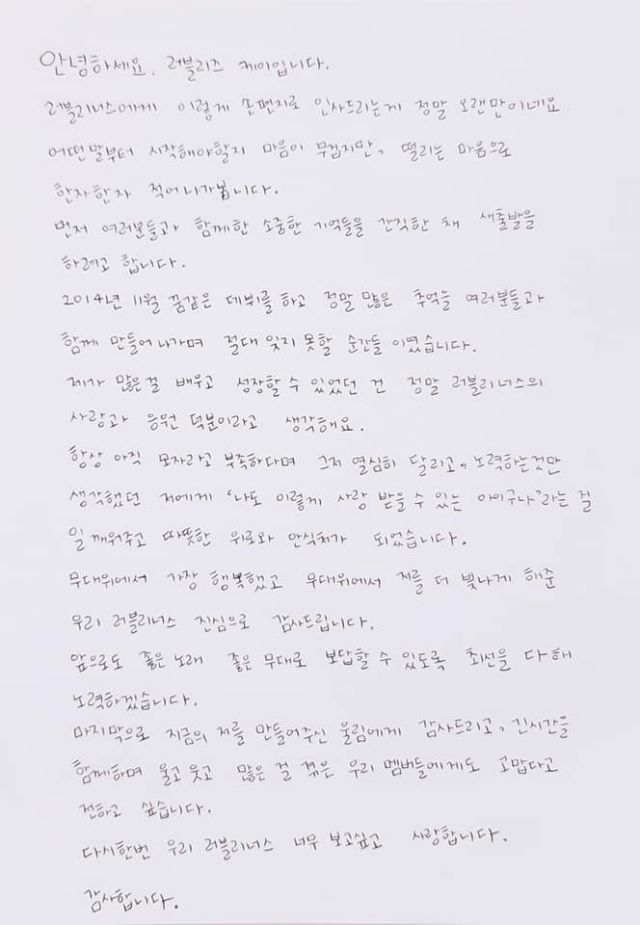 안녕하세요. 러블리즈 케이입니다.
러블리너스에게 이렇게 손편지로 인사드리는게 정말 오랜만이네요
어떤말부터 시작해야할지 마음이 무겁지만, 떨리는 마음으로
한자한자 적어나가봅니다.
먼저 여러분들과 함께한 소중한 기억들을 간직한 채 새출발을
하려고 합니다.
2014년 11월 꿈같은 데뷔를 하고 정말 많은 추억을 여러분들과
함께 만들어 나가며 절대 잊지 못할 순간들 이였습니다.
제가 많은걸 배우고 성장할 수 있었던 건 정말 러블리너스의
사랑과 응원 덕분이라고 생각해요.
항상 아직 모자라고 부족하다며 그저 열심히 달리고, 노력하는것만
생각했던 저에게 '나도 이렇게 사랑 받을 수 있는 아이구나'라는 걸
일깨워주고 따뜻한 위로와 안식처가 되었습니다.
무대위에서 가장 행복했고 무대위에서 저를 더 빛나게 해준
우리 러블리너스 진심으로 감사드립니다.
앞으로도 좋은 노래 좋은 무대로 보답할 수 있도록 최선을 다해
노력하겠습니다.
마지막으로 지금의 저를 만들어주신 울림에게 감사드리고, 긴시간을
함께하며 울고 웃고 많은 걸 겪은 우리 멤버들에게도 고맙다고
전하고 싶습니다.
다시한번 우리 러블리너스 너무 보고싶고 사랑합니다.
감사합니다.